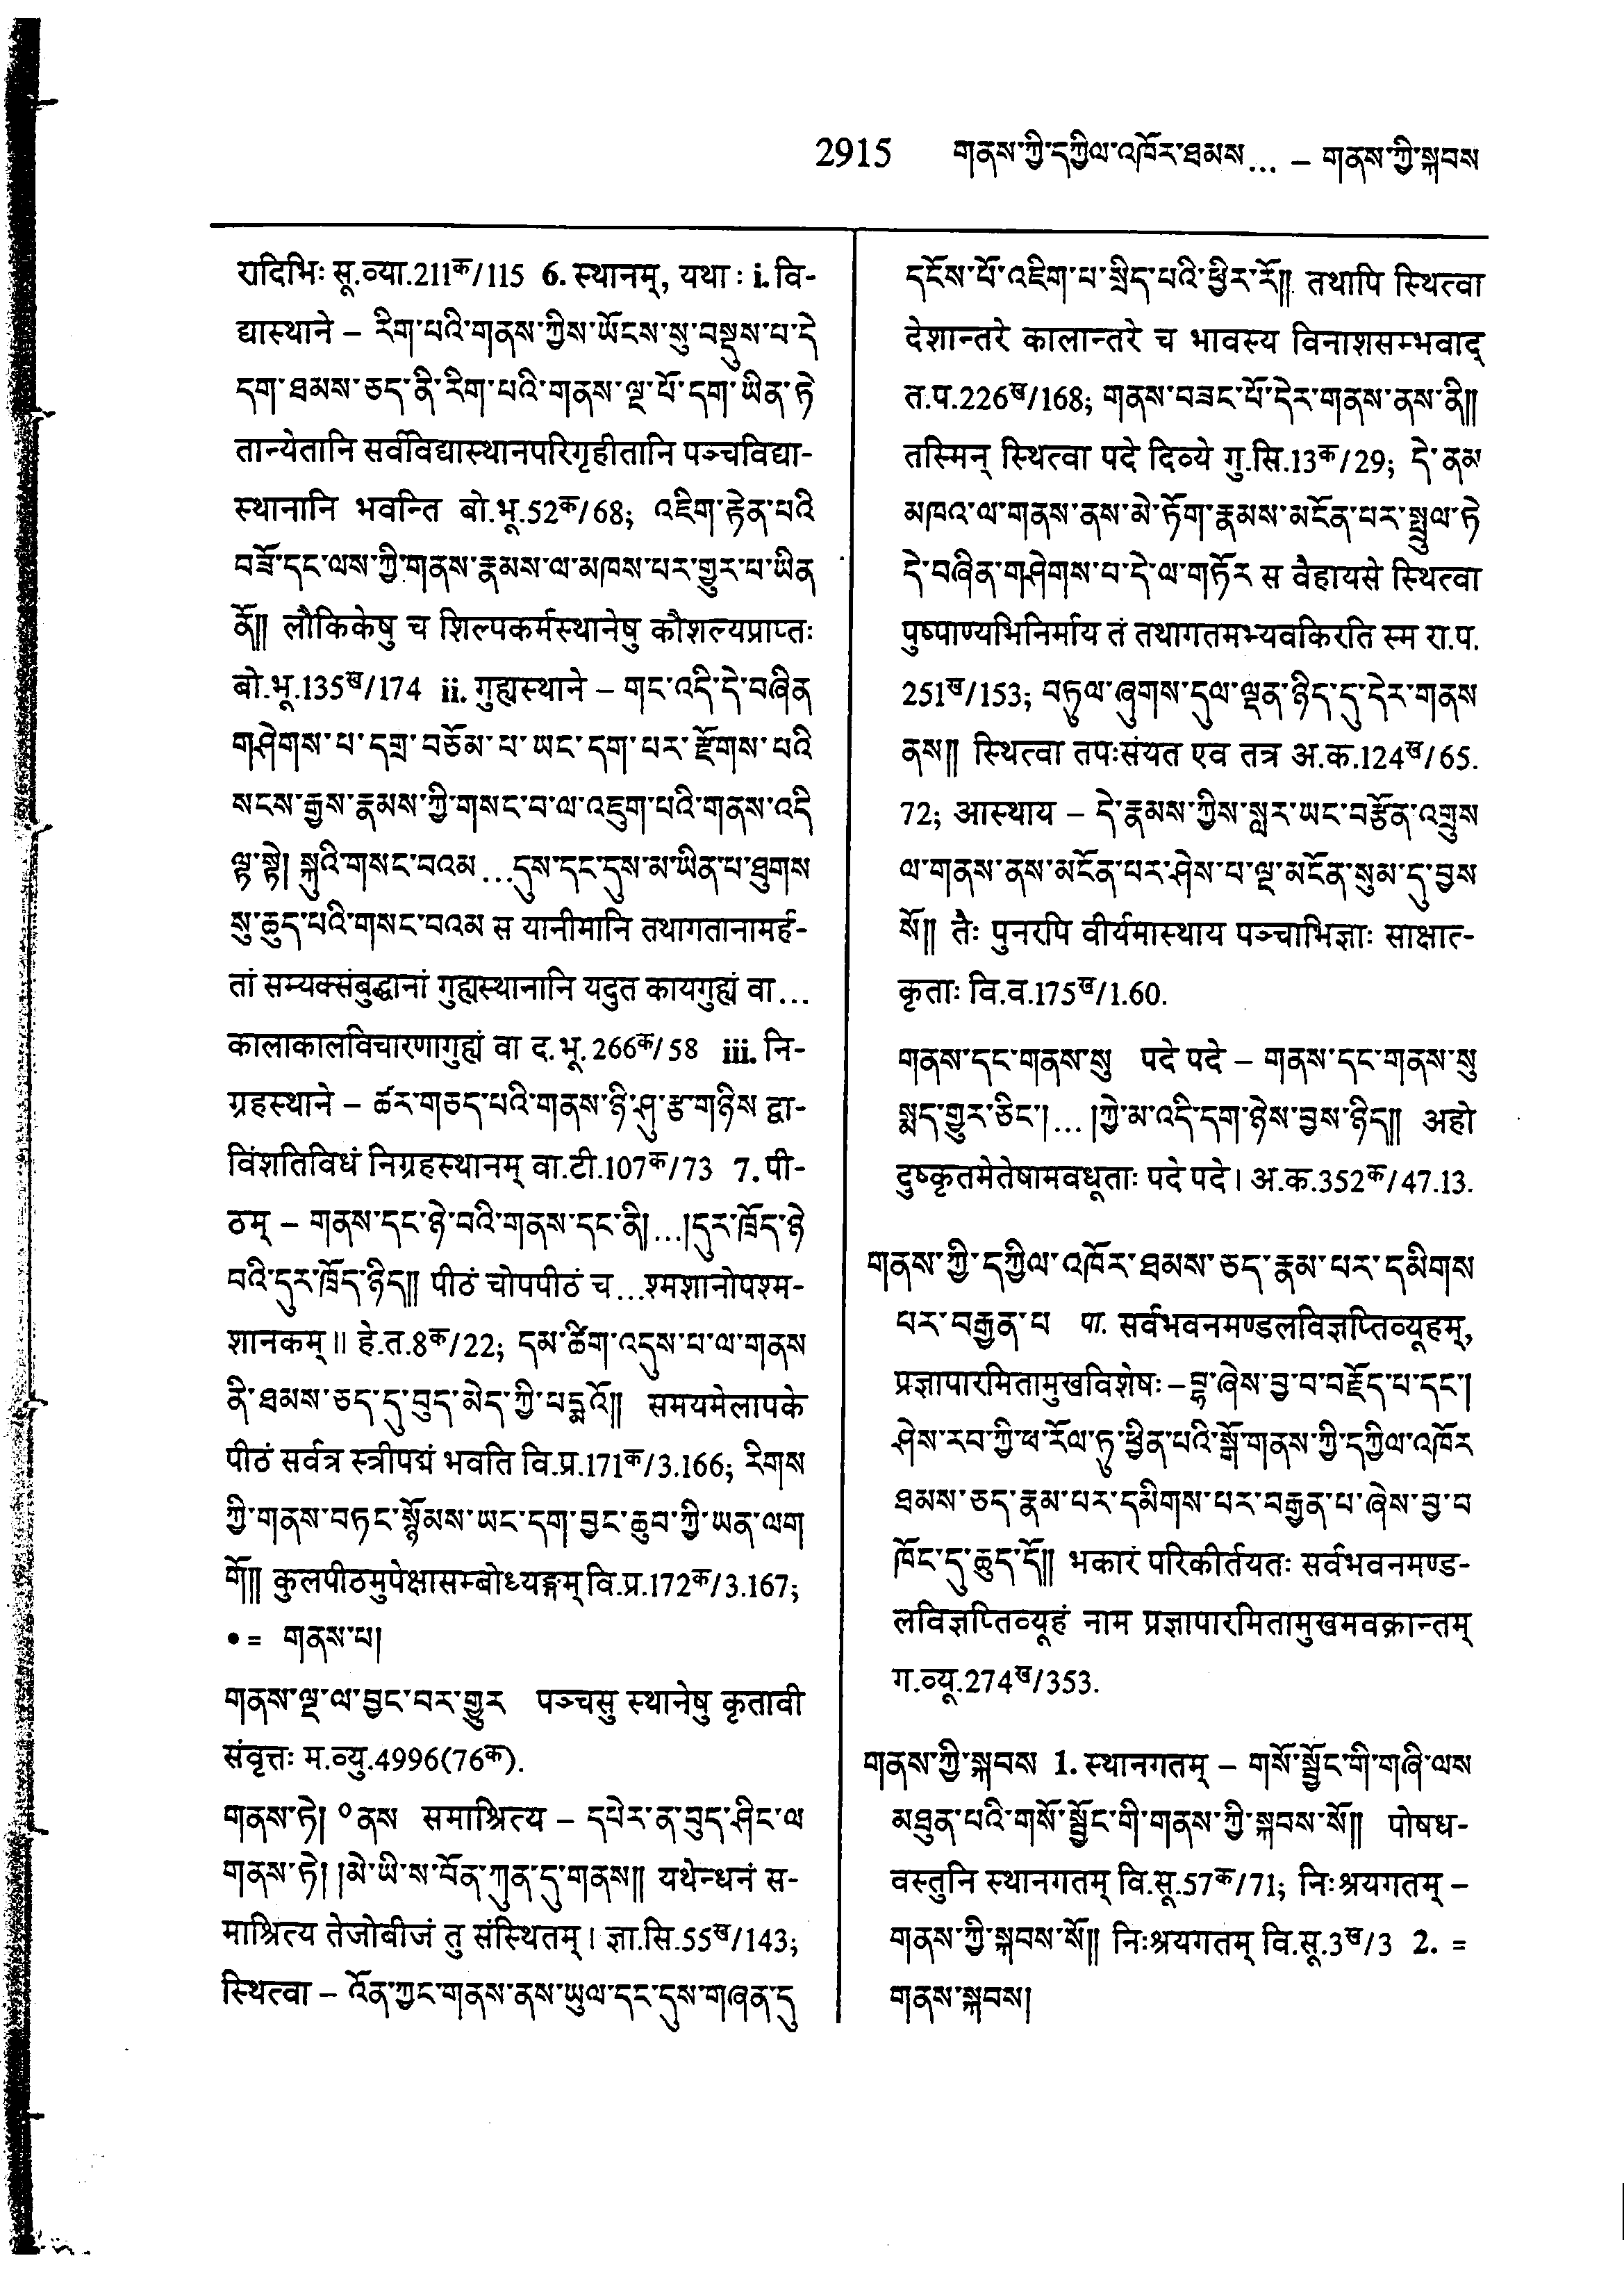 2915 གནས་ཀྱི་དཀྱིལ་འཁོར་ཐམས... – གནས་ཀྱི་སྐབས
रादिभिः सू.व्या.211क/115 6. स्थानम्, यथा : i. वि-
द्यास्थाने – རིག་པའི་གནས་ཀྱིས་ཡོངས་སུ་བསྡུས་པ་དེ
དག་ཐམས་ཅད་ནི་རིག་པའི་གནས་ལྔ་པོ་དག་ཡིན་ཏེ
तान्येतानि सर्वविद्यास्थानपरिगृहीतानि पञ्चविद्या-
स्थानानि भवन्ति बो.भू.52क/68; འཇིག་རྟེན་པའི
བཟོ་དང་ལས་ཀྱི་གནས་རྣམས་ལ་མཁས་པར་གྱུར་པ་ཡིན
ནོ༎ लौकिकेषु च शिल्पकर्मस्थानेषु कौशल्यप्राप्तः
बो.भू.135ख/174 ii. गुह्यस्थाने – གང་འདི་དེ་བཞིན
གཤེགས་པ་དགྲ་བཅོམ་པ་ཡང་དག་པར་རྫོགས་པའི
སངས་རྒྱས་རྣམས་ཀྱི་གསང་བ་ལ་འཇུག་པའི་གནས་འདི
ལྟ་སྟེ། སྐུའི་གསང་བའམ...དུས་དང་དུས་མ་ཡིན་པ་ཐུགས
སུ་ཆུད་པའི་གསང་བའམ स यानीमानि तथागतानामर्ह-
तां सम्यक्संबुद्धानां गुह्यस्थानानि यदुत कायगुह्यं वा...
कालाकालविचारणागुह्यं वा द.भू.266क/58 iii. नि-
ग्रहस्थाने – ཚར་གཅད་པའི་གནས་ཉི་ཤུ་རྩ་གཉིས द्वा-
विंशतिविधं निग्रहस्थानम् वा.टी.107क/73 7. पी-
ठम् – གནས་དང་ཉེ་བའི་གནས་དང་ནི།...།དུར་ཁྲོད་ཉེ
བའི་དུར་ཁྲོད་ཉིད༎ पीठं चोपपीठं च...श्मशानोपश्म-
शानकम्॥ हे.त.8क/22; དམ་ཚིག་འདུས་པ་ལ་གནས
ནི་ཐམས་ཅད་དུ་བུད་མེད་ཀྱི་པདྨའོ༎ समयमेलापके
पीठं सर्वत्र स्त्रीपद्मं भवति वि.प्र.171क/3.166; རིགས
ཀྱི་གནས་བཏང་སྙོམས་ཡང་དག་བྱང་ཆུབ་ཀྱི་ཡན་ལག
གོ༎ कुलपीठमुपेक्षासम्बोध्यङ्गम् वि.प्र.172क/3.167;
•= གནས་པ།
གནས་ལྔ་ལ་བྱང་བར་གྱུར पञ्चसु स्थानेषु कृतावी
संवृत्तः म.व्यु.4996(76क).
གནས་ཏེ། ༠ནས समाश्रित्य – དཔེར་ན་བུད་ཤིང་ལ
གནས་ཏེ། །མེ་ཡི་ས་བོན་ཀུན་དུ་གནས༎ यथेन्धनं स-
माश्रित्य तेजोबीजं तु संस्थितम्। ज्ञा.सि.55ख/143;
स्थित्वा – འོན་ཀྱང་གནས་ནས་ཡུལ་དང་དུས་གཞན་དུ
དངོས་པོ་འཇིག་པ་སྲིད་པའི་ཕྱིར་རོ༎ तथापि स्थित्वा
देशान्तरे कालान्तरे च भावस्य विनाशसम्भवाद्
त.प.226ख/168; གནས་བཟང་པོ་དེར་གནས་ནས་ནི༎
तस्मिन् स्थित्वा पदे दिव्ये गु.सि.13क/29; དེ་ནམ
མཁའ་ལ་གནས་ནས་མེ་ཏོག་རྣམས་མངོན་པར་སྤྲུལ་ཏེ
དེ་བཞིན་གཤེགས་པ་དེ་ལ་གཏོར स वैहायसे स्थित्वा
पुष्पाण्यभिनिर्माय तं तथागतमभ्यवकिरति स्म रा.प.
251ख/153; བཏུལ་ཞུགས་དུལ་ལྡན་ཉིད་དུ་དེར་གནས
ནས༎ स्थित्वा तपःसंयत एव तत्र अ.क.124ख/65.
72; आस्थाय – དེ་རྣམས་ཀྱིས་སླར་ཡང་བརྩོན་འགྲུས
ལ་གནས་ནས་མངོན་པར་ཤེས་པ་ལྔ་མངོན་སུམ་དུ་བྱས
སོ༎ तैः पुनरपि वीर्यमास्थाय पञ्चाभिज्ञाः साक्षात्-
कृताः वि.व.175ख/1.60.
གནས་དང་གནས་སུ पदे पदे – གནས་དང་གནས་སུ
སྨད་གྱུར་ཅིང་།...།ཀྱེ་མ་འདི་དག་ཉེས་བྱས་ཉིད༎ अहो
दुष्कृतमेतेषामवधूताः पदे पदे। अ.क.352क/47.13.
གནས་ཀྱི་དཀྱིལ་འཁོར་ཐམས་ཅད་རྣམ་པར་དམིགས
པར་བརྒྱན་པ पा. सर्वभवनमण्डलविज्ञप्तिव्यूहम्,
प्रज्ञापारमितामुखविशेषः – བྷ་ཞེས་བྱ་བ་བརྗོད་པ་དང་།
ཤེས་རབ་ཀྱི་ཕ་རོལ་ཏུ་ཕྱིན་པའི་སྒོ་གནས་ཀྱི་དཀྱིལ་འཁོར
ཐམས་ཅད་རྣམ་པར་དམིགས་པར་བརྒྱན་པ་ཞེས་བྱ་བ
ཁོང་དུ་ཆུད་དོ༎ भकारं परिकीर्तयतः सर्वभवनमण्ड-
लविज्ञप्तिव्यूहं नाम प्रज्ञापारमितामुखमवक्रान्तम्
ग.व्यू.274ख/353.
གནས་ཀྱི་སྐབས 1. स्थानगतम् – གསོ་སྦྱོང་གི་གཞི་ལས
མཐུན་པའི་གསོ་སྦྱོང་གི་གནས་ཀྱི་སྐབས་སོ༎ पोषध-
वस्तुनि स्थानगतम् वि.सू.57क/71; निःश्रयगतम् –
གནས་ཀྱི་སྐབས་སོ༎ निःश्रयगतम् वि.सू.3ख/3 2. =
གནས་སྐབས།